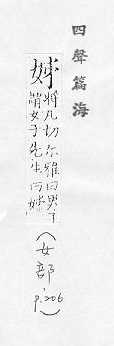 四聲篇海
姊
將几切尒雅曰男子
謂女子先生曰姊
（女部，p.206）